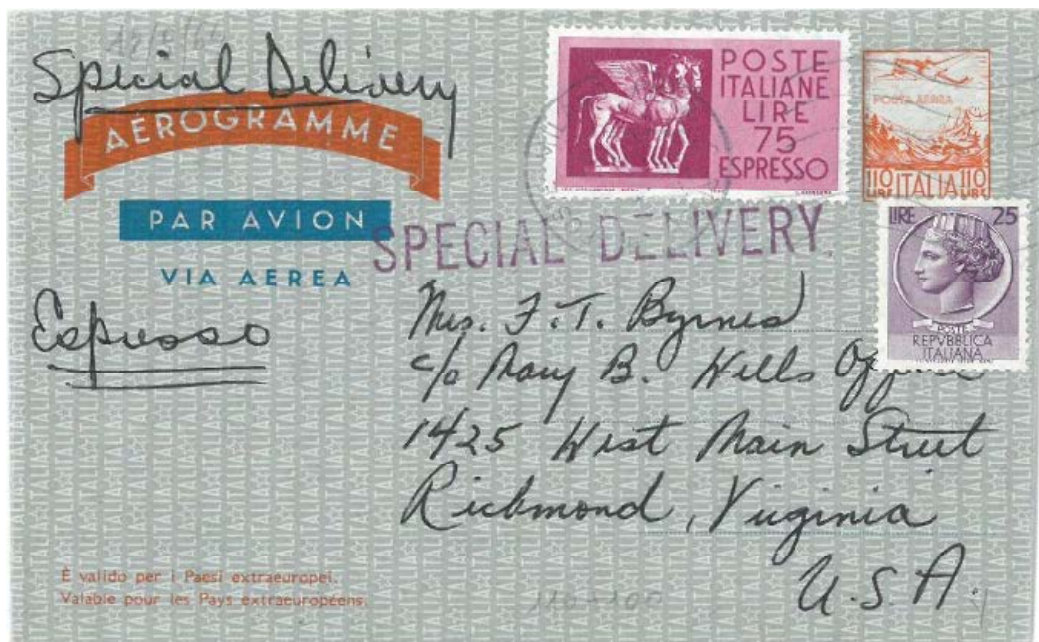 Special Delivery
AÉROGRAMME
PAR AVION
VIA AEREA
Espresso
POSTE
ITALIANE
LIRE
75
ESPRESSO
POSTA AEREA
110 ITALIA 110
LIRE LIRE
LIRE 25
POSTE
REPVBBLICA
ITALIANA
SPECIAL DELIVERY.
Mrs. F. T. Byrnes
c/o Mary B. Wills
1425 West Main Street
Richmond, Virginia
U.S.A.
È valido per i Paesi extraeuropei.
Valable pour les Pays extraeuropéens.